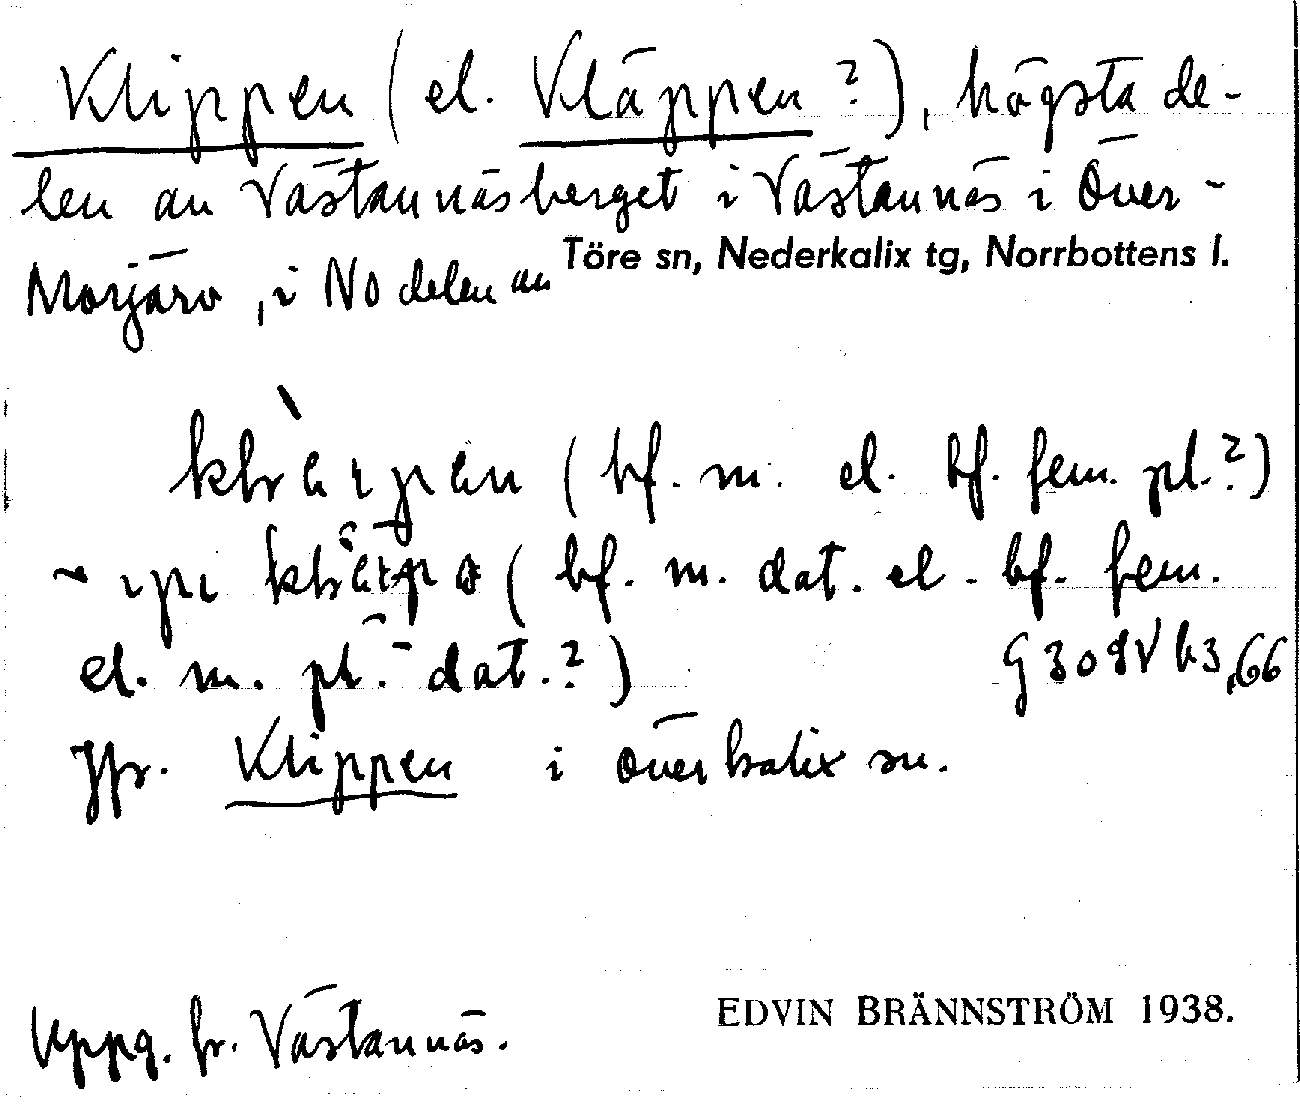 Klippen (el. Kläppen?), högsta de-
len av Västannäsberget i Västannäs i Över-
Morjärv, i NO delen av Töre sn, Nederkalix tg, Norrbottens l.
(bf. m. el. bf. fem. pl.?)
(bf. m. dat. el. bf. fem.
el. m. pl. dat.?)
Jfr. Klippen i Överkalix sn.
Uppg. fr. Västannäs.
EDVIN BRÄNNSTRÖM 1938.